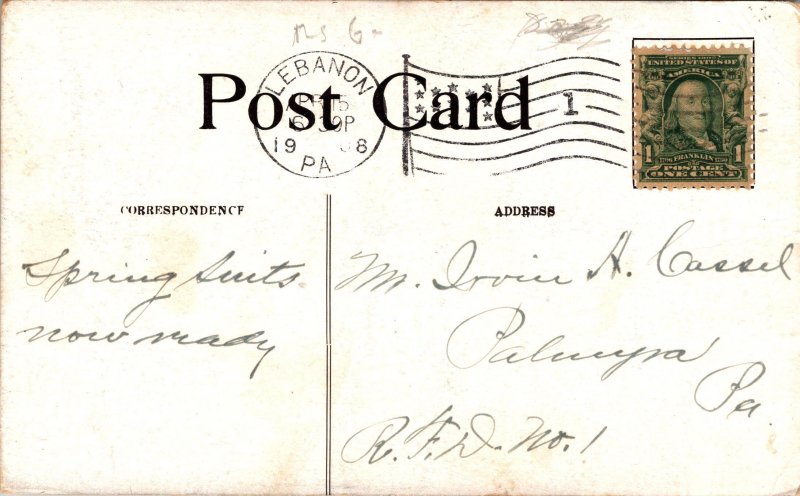 Post Card
LEBANON
PA
1
SERIES 1902
UNITED STATES OF
AMERICA
1 FRANKLIN 1
POSTAGE
ONE CENT
CORRESPONDENCE
ADDRESS
Spring Suits
now ready
Mr. Irvin H. Cassel
Palmyra
Pa.
R.F.D. No. 1